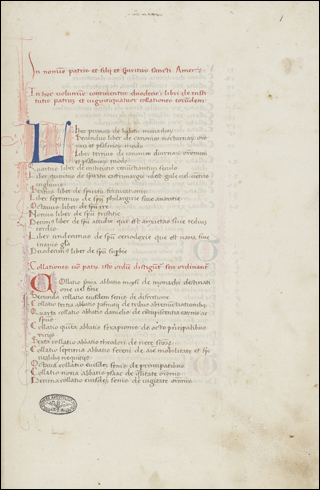 In nomine patris et filij et spiritus sancti Amen
In hoc volumine continentur duodecim libri de insti
tutis patrum et vigintiquatuor collationes eorundem
Liber primus de habitu monachorum
Secundus liber de canonico nocturnarum
et psalmorum modo
Liber tertius de canonico diurnarum orationum
et psalmorum modo
Quartus liber de institutis renunciantium seculo
Liber quintus de spiritu gastrimargie id est gule
Sextus liber de spiritu fornicationis
Liber septimus de spiritu philargirie sive avaritie
Octavus liber de spiritu ire
Nonus liber de spiritu tristitie
Decimus liber de spiritu accidie que est anxietas sive tedium
cordis
Liber undecimus de spiritu cenodoxie que est vana sive
inanis gloria
Duodecimus liber de spiritu superbie
Collationes
Collatio prima abbatis moysi de monachi destinati
one vel fine
Secunda collatio eiusdem moysi de discretione
Collatio tertia abbatis pafnutij de tribus abrenunciationibus
Quarta collatio abbatis danielis de concupiscentia carnis ac
spiritus
Collatio quinta abbatis serapionis de octo principalibus
vitijs
Sexta collatio abbatis theodori de nece sanctorum
Collatio septima abbatis sereni de anime mobilitate et spi
ritalibus nequitijs
Octava collatio eiusdem sereni de principatibus
Collatio nona abbatis ysaac de qualitate orationis
Decima collatio eiusdem de iugitate orationis